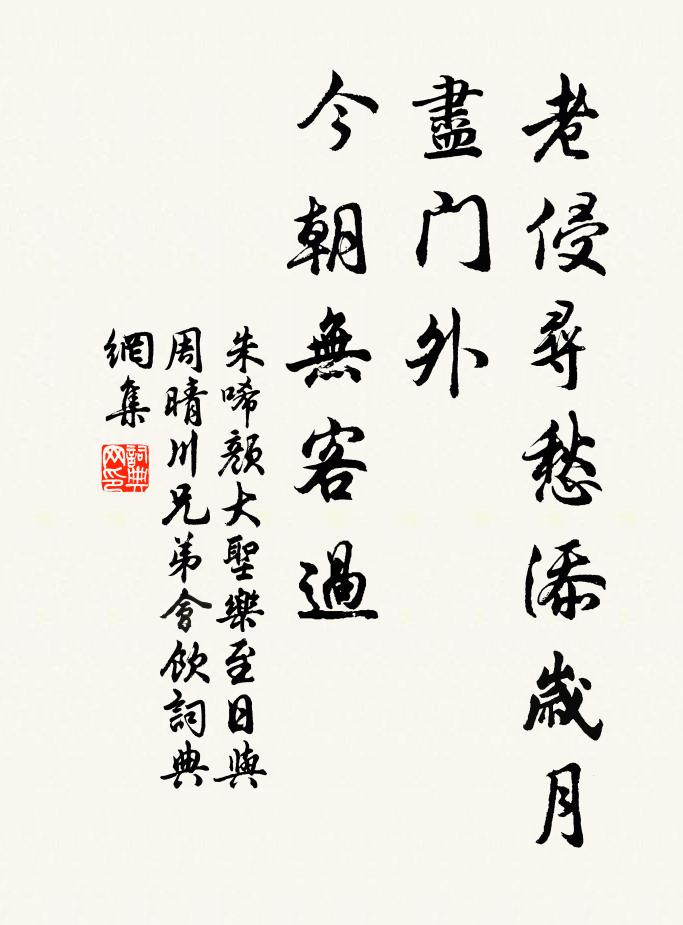 老侵尋愁添歲月
盡門外
今朝無客過
朱唏顏大聖樂至日與
周晴川兄弟會飲詞典
網集
詞典網印